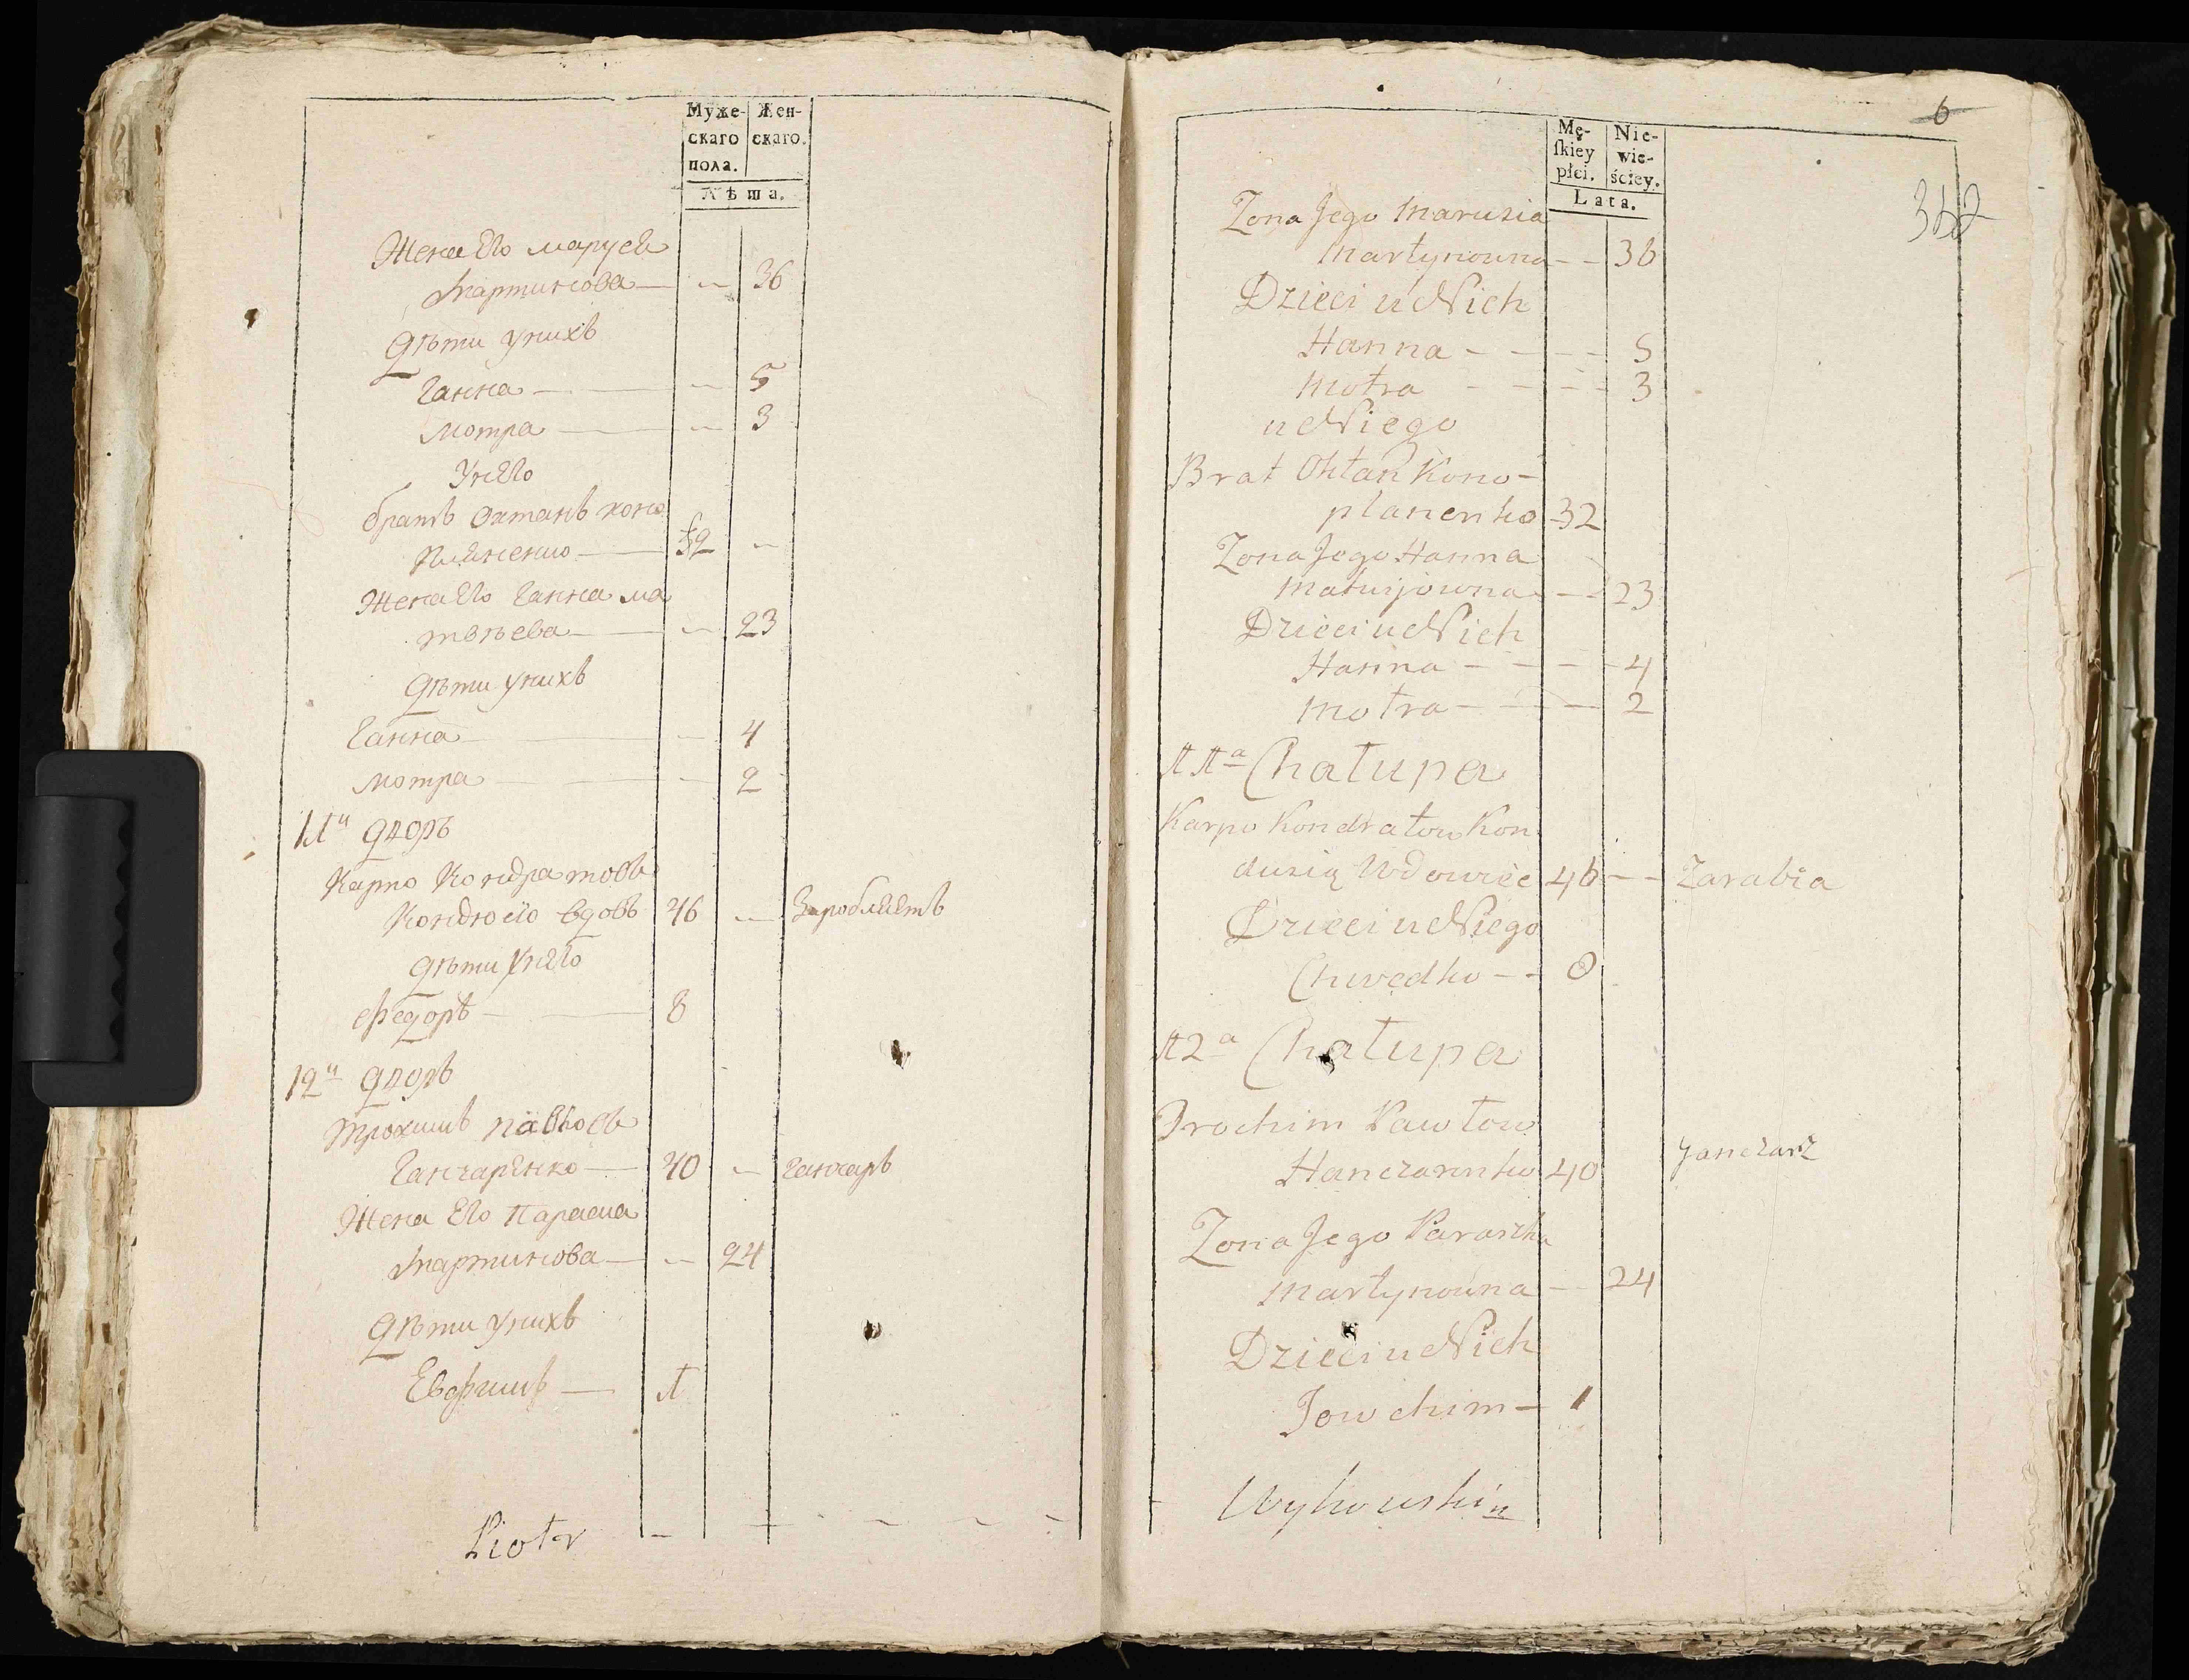 Муже- Жен-
скаго скаго.
пола.
Лѣта.
Жена Его маруся
мартинова — — 36
Дѣти унихъ
Ганна — — 5
мотра — — 3
Унего
братъ Охтанъ коно
пляненко — 32 —
Жена Его Ганна ма
твѣева — — 23
Дѣти унихъ
Ганна — — 4
мотра — — 2
11й Дворъ
Карпо Кондратовъ
Кондюсю вдовъ 46 — Заробляетъ
Дѣти Унего
Федоръ — 8
12й Дворъ
Трохимъ павловъ
Ганчаренко — 40 — ганчаръ
Жена Его Параска
мартинова — — 24
Дѣти унихъ
Евфимъ — 1
Piotr
6
362
Mę- Nie-
ſkiey wie-
płci. ściey.
Lata.
Zona Jego Marusia
Martynowna — — 36
Dzieci u Nich
Hanna — — 5
Motra — — 3
u Niego
Brat Ohtan Kono-
planenko 32
Zona Jego Hanna
Matwijowna — — 23
Dzieci u Nich
Hanna — — 4
Motra — — 2
11a Chałupa
Karpo Kondratow Kon
dusią Wdowiec 46 — — Zarabia
Dzieci u Niego
Chwedko — — 8
12a Chałupa
Trochim Pawłow
Hanczarenko 40 Janczarz
Zona Jego Paraszka
Martynowna — — 24
Dzieci u Nich
Jowchim — 1
Wyhowski